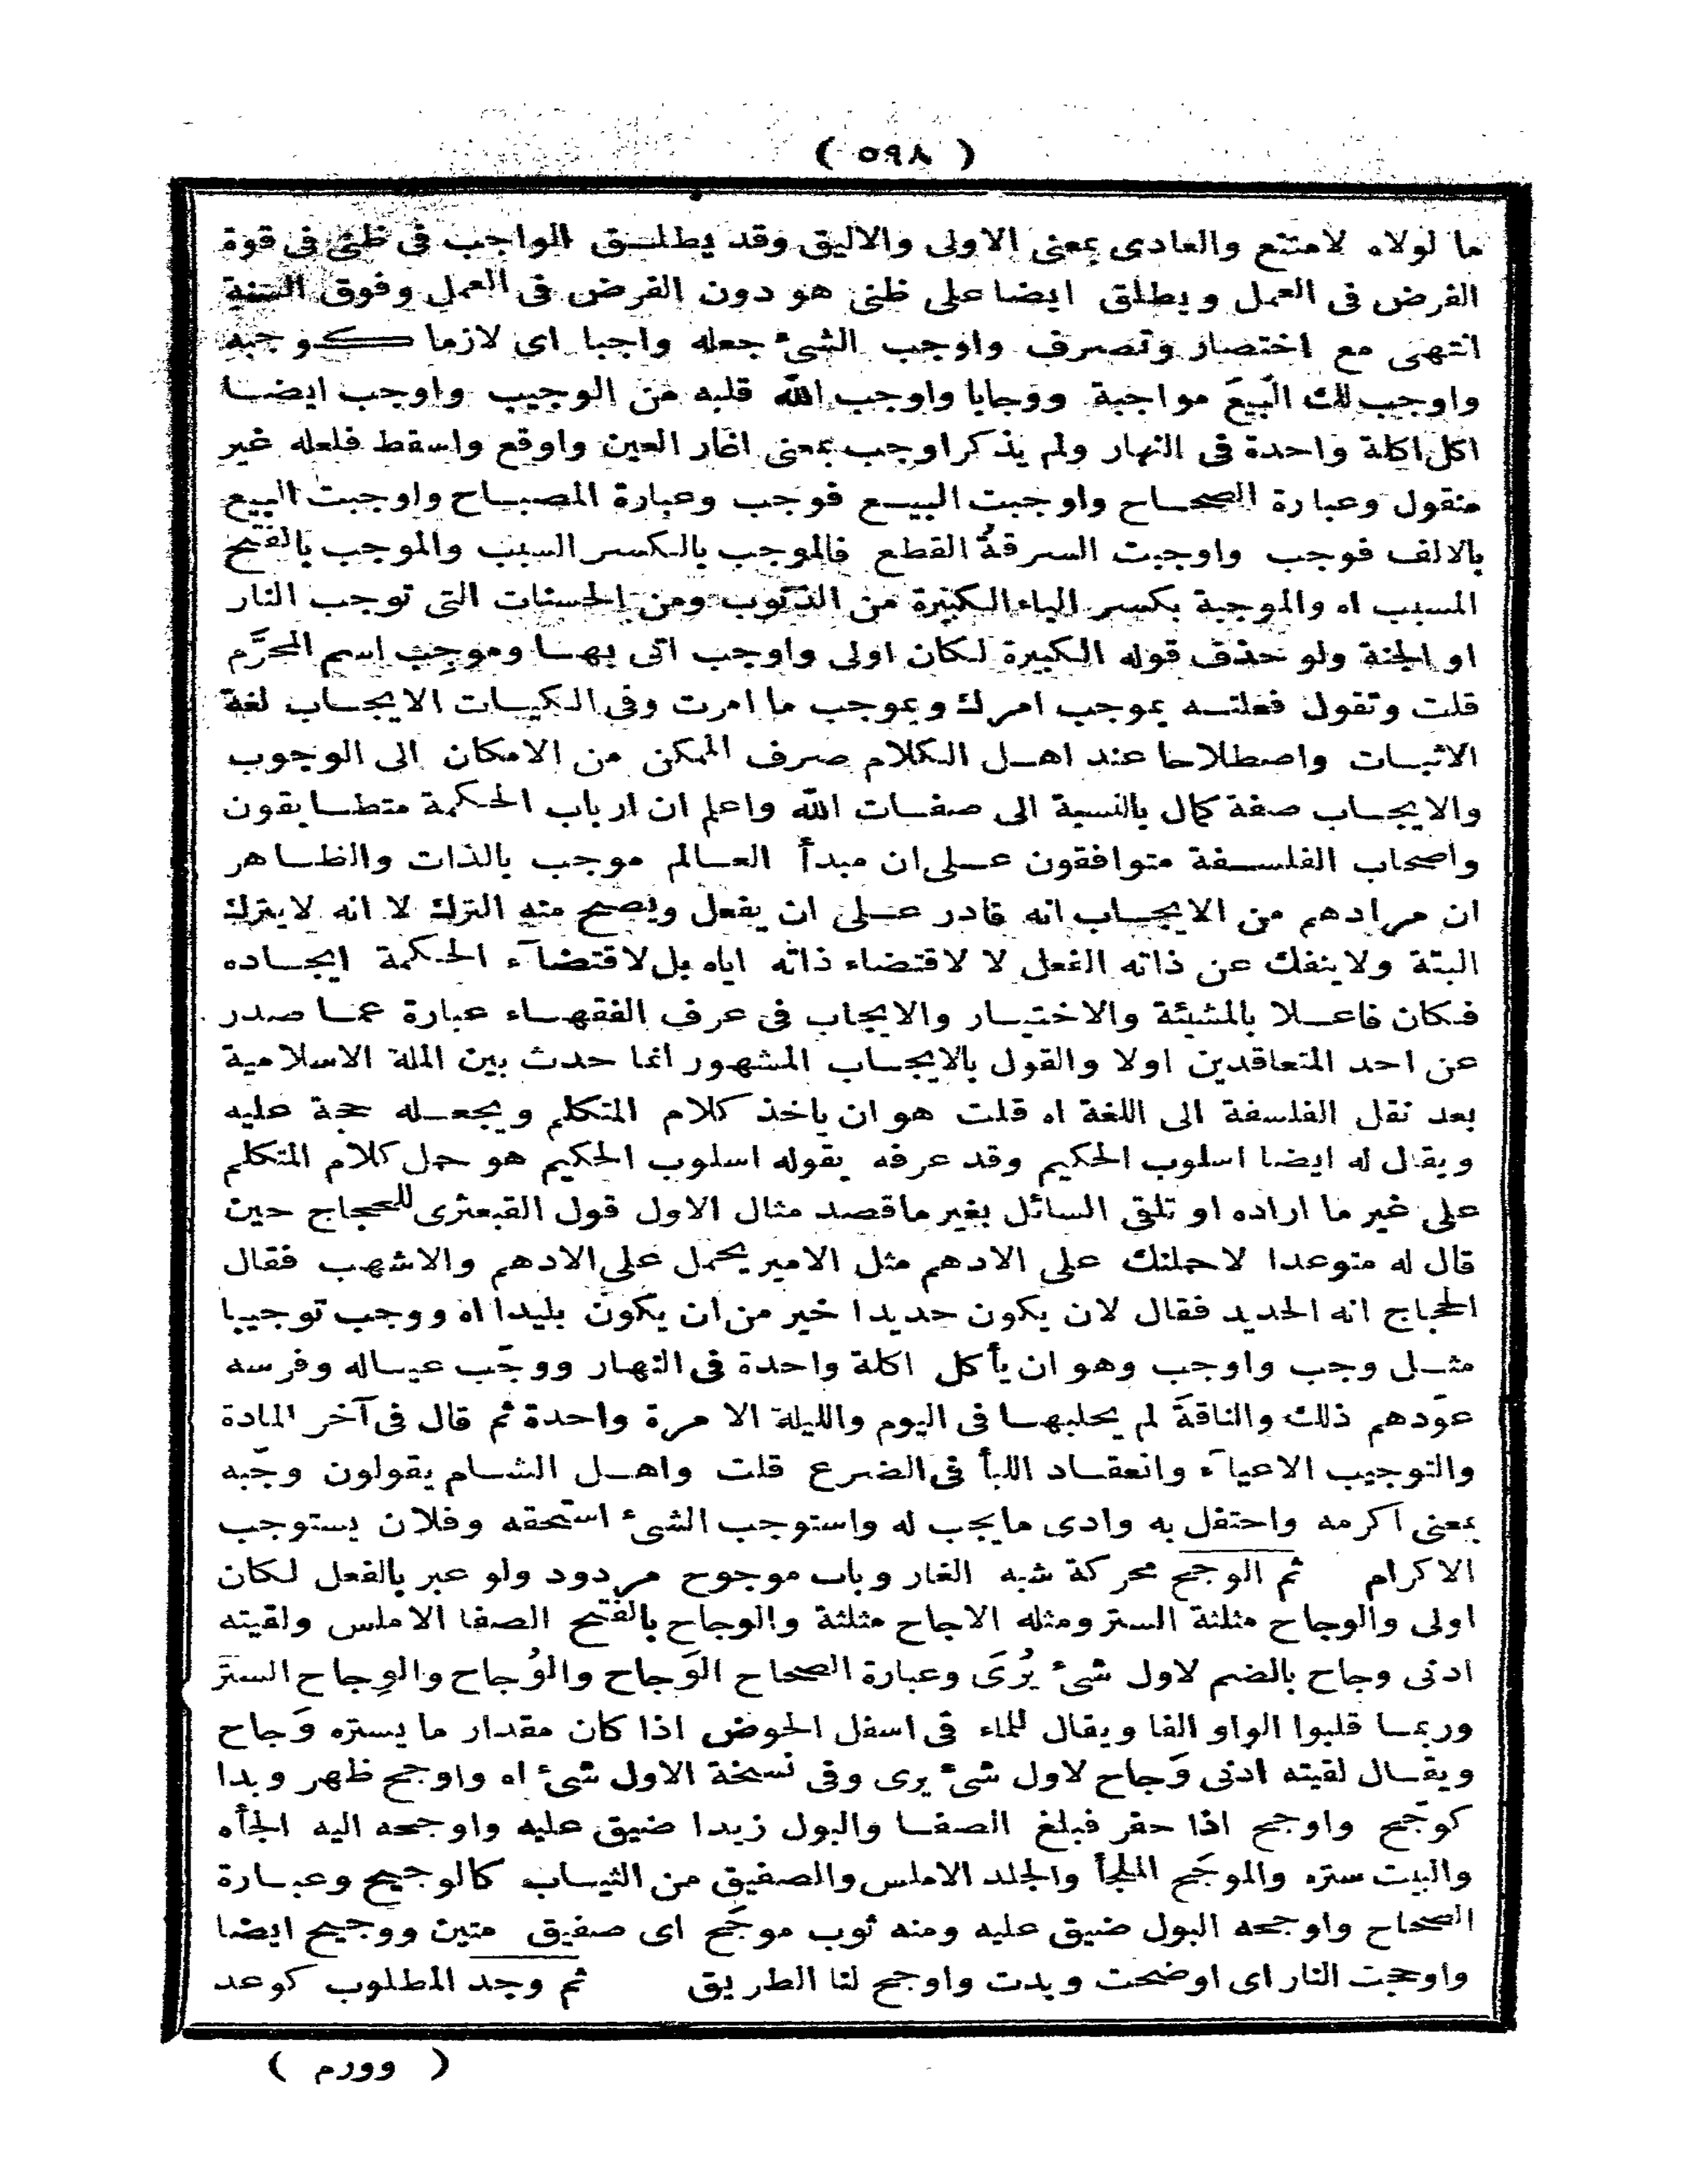 ( ٥٩٨ )
ما لولاه لامتنع والعادى بمعنى الاولى والاليق وقد يطلق الواجب فى ظنى فى قوة
الفرض فى العمل ويطلق ايضا على ظنى هو دون الفرض فى العمل وفوق السنة
انتهى مع اختصار وتصرف واوجب الشئ جعله واجبا اى لازما كوجبه
واوجب لك البيعَ مواجبة ووجابا واوجب الله قلبه من الوجيب واوجب ايضا
اكل اكلة واحدة فى النهار ولم يذكر اوجب بمعنى اغار العين واوقع واسقط فلعله غير
منقول وعبارة الصحاح واوجبت البيع فوجب وعبارة المصباح واوجبت البيع
بالالف فوجب واوجبت السرقةُ القطع فالموجب بالكسر السبب والموجب بالفتح
المسبب اه والموجبة بكسر الياء الكبيرة من الذنوب ومن الحسنات التى توجب النار
او الجنة ولو حذف قوله الكبيرة لكان اولى واوجب اتى بها وموجِب اسم المحرَّم
قلت وتقول فعلته بموجب امرك وبموجب ما امرت وفى الكيات الايجاب لغة
الاثبات واصطلاحا عند اهل الكلام صرف الممكن من الامكان الى الوجوب
والايجاب صفة كمال بالنسبة الى صفات الله واعلم ان ارباب الحكمة متطابقون
واصحاب الفلسفة متوافقون على ان مبدأ العالم موجب بالذات والظاهر
ان مرادهم من الايجاب انه قادر على ان يفعل ويصح منه الترك لا انه لايترك
البتة ولاينفك عن ذاته الفعل لا لاقتضاء ذاته اياه بل لاقتضآء الحكمة ايجاده
فكان فاعلا بالمشيئة والاختيار والايجاب فى عرف الفقهاء عبارة عما صدر
عن احد المتعاقدين اولا والقول بالايجاب المشهور انما حدث بين الملة الاسلامية
بعد نقل الفلسفة الى اللغة اه قلت هو ان ياخذ كلام المتكلم ويجعله حجة عليه
ويقال له ايضا اسلوب الحكيم وقد عرفه بقوله اسلوب الحكيم هو حمل كلام المتكلم
على غير ما اراده او تلقى السائل بغير ماقصد مثال الاول قول القبعثرى للحجاج حين
قال له متوعدا لاحملنك على الادهم مثل الامير يحمل على الادهم والاشهب فقال
الحجاج انه الحديد فقال لان يكون حديدا خير من ان يكون بليدا اه ووجب توجيبا
مثل وجب واوجب وهو ان يأكل اكلة واحدة فى النهار ووجّب عياله وفرسه
عوّدهم ذلك والناقةَ لم يحلبها فى اليوم والليلة الا مرة واحدة ثم قال فى آخر المادة
والتوجيب الاعيآء وانعقاد اللبأ فى الضرع قلت واهل الشام يقولون وجّبه
بمعنى اكرمه واحتفل به وادى مايجب له واستوجب الشئ استحقه وفلان يستوجب
الاكرام ثم الوجح محركة شبه الغار وباب موجوح مردود ولو عبر بالفعل لكان
اولى والوجاح مثلثة الستر ومثله الاجاح مثلثة والوجاح بالفتح الصفا الاملس ولقيته
ادنى وجاح بالضم لاول شئ يُرَى وعبارة الصحاح الوَجاح والوُجاح والوِجاح الستر
وربما قلبوا الواو الفا ويقال للماء فى اسفل الحوض اذا كان مقدار ما يستره وَجاح
ويقال لقيته ادنى وَجاح لاول شئ يرى وفى نسخة الاول شئ اه واوجح ظهر وبدا
كوجّح واوجح اذا حفر فبلغ الصفا والبول زيدا ضيق عليه واوجحه اليه الجأه
والبيت ستره والموجَح الملجأ والجلد الاملس والصفيق من الثياب كالوجيح وعبارة
الصحاح واوجحه البول ضيق عليه ومنه ثوب موجَح اى صفيق متين ووجيح ايضا
واوجحت النار اى اوضحت وبدت واوجح لنا الطريق ثم وجد المطلوب كوعد
( وورم )